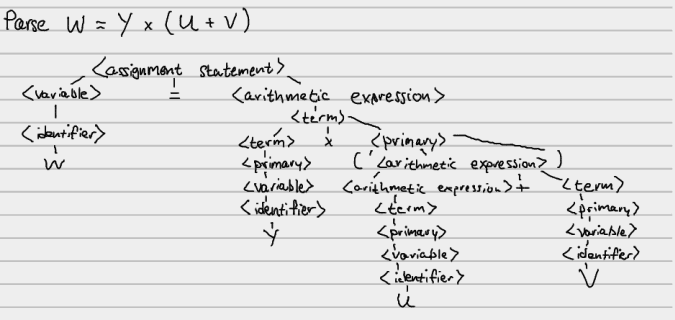 Parse W = Y × (U + V)
<assignment statement>
<variable> = <arithmetic expression>
<term>
<identifier> <term> × <primary>
W <primary> ( <arithmetic expression> )
<variable> <arithmetic expression> + <term>
<identifier> <term> <primary>
Y <primary> <variable>
<variable> <identifier>
<identifier> V
U